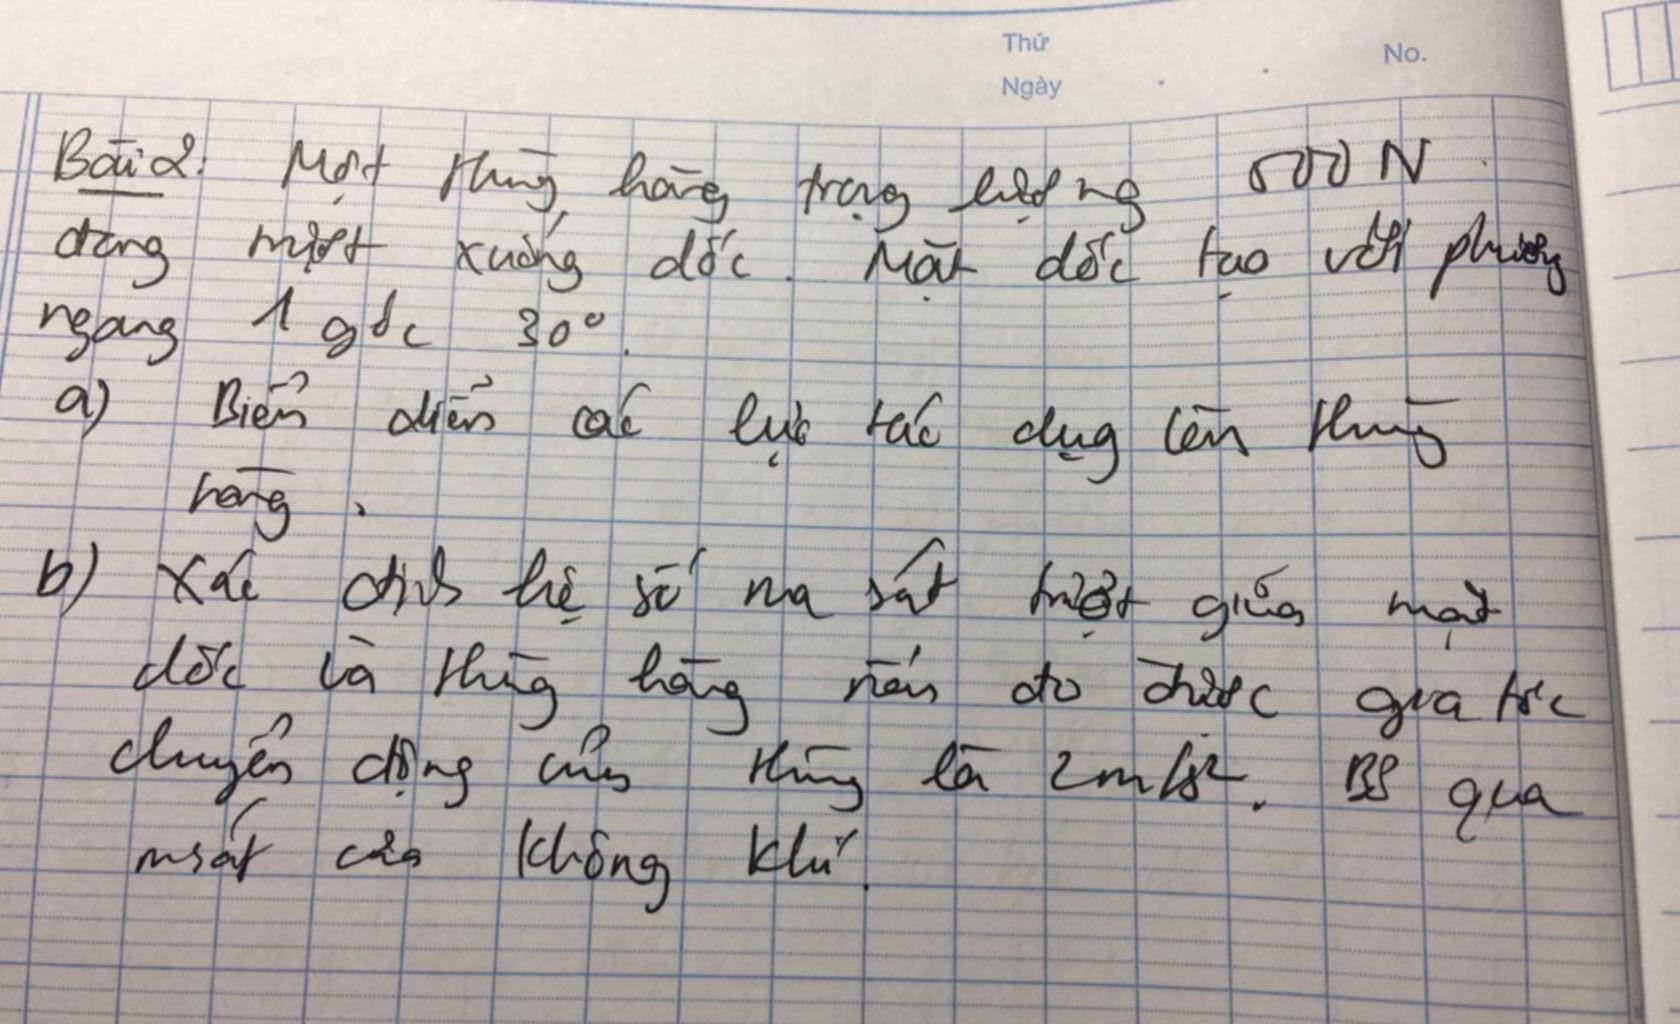 Thứ
Ngày
No.
Bài 2: Một thùng hàng trọng lượng 500 N
đang trượt xuống dốc. Mặt dốc tạo với phương
ngang 1 góc 30°.
a) Biểu diễn các lực tác dụng lên thùng
hàng.
b) Xác định hệ số ma sát trượt giữa mặt
dốc và thùng hàng nếu đo được gia tốc
chuyển động của thùng là 2m/s². Bỏ qua
msát của không khí.